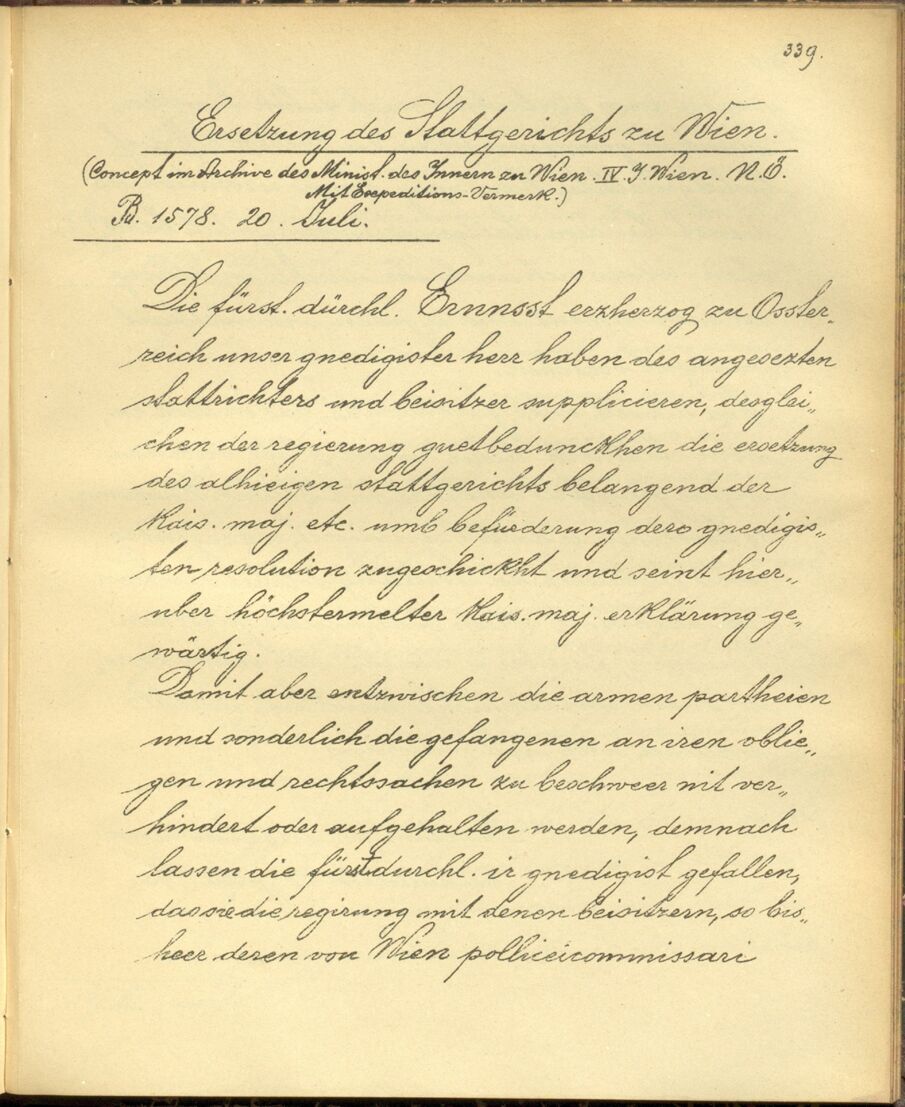 339.
Ersetzung des Stattgerichts zu Wien.
(Concept im Archive des Minist. des Innern zu Wien. IV. J. Wien. N.Ö.
Mit Expeditions-Vermerk.)
1578. 20. Juli.
Die fürst. dürchl. Ernnsst erzherzog zu Osster„
reich unser gnedigister herr haben des angesezten
stattrichters und beisitzer supplicieren, desglei„
chen der regierung guetbedunckhen die ersetzung
des alhieigen stattgerichts belangend der
kais. maj. etc. umb befürderung dero gnedigis„
ten resolution zugeschickht und seint hier„
uber höchstermelter kais. maj. erklärung ge„
wärtig.
Damit aber entzwischen die armen partheien
und sonderlich die gefangenen an iren oblie„
gen und rechtssachen zu beschweer nit ver„
hindert oder aufgehalten werden, demnach
lassen die fürst durchl. ir gnedigist gefallen,
das sie die regirung mit denen beisitzern, so bis„
heer deren von Wien polliceicommissari